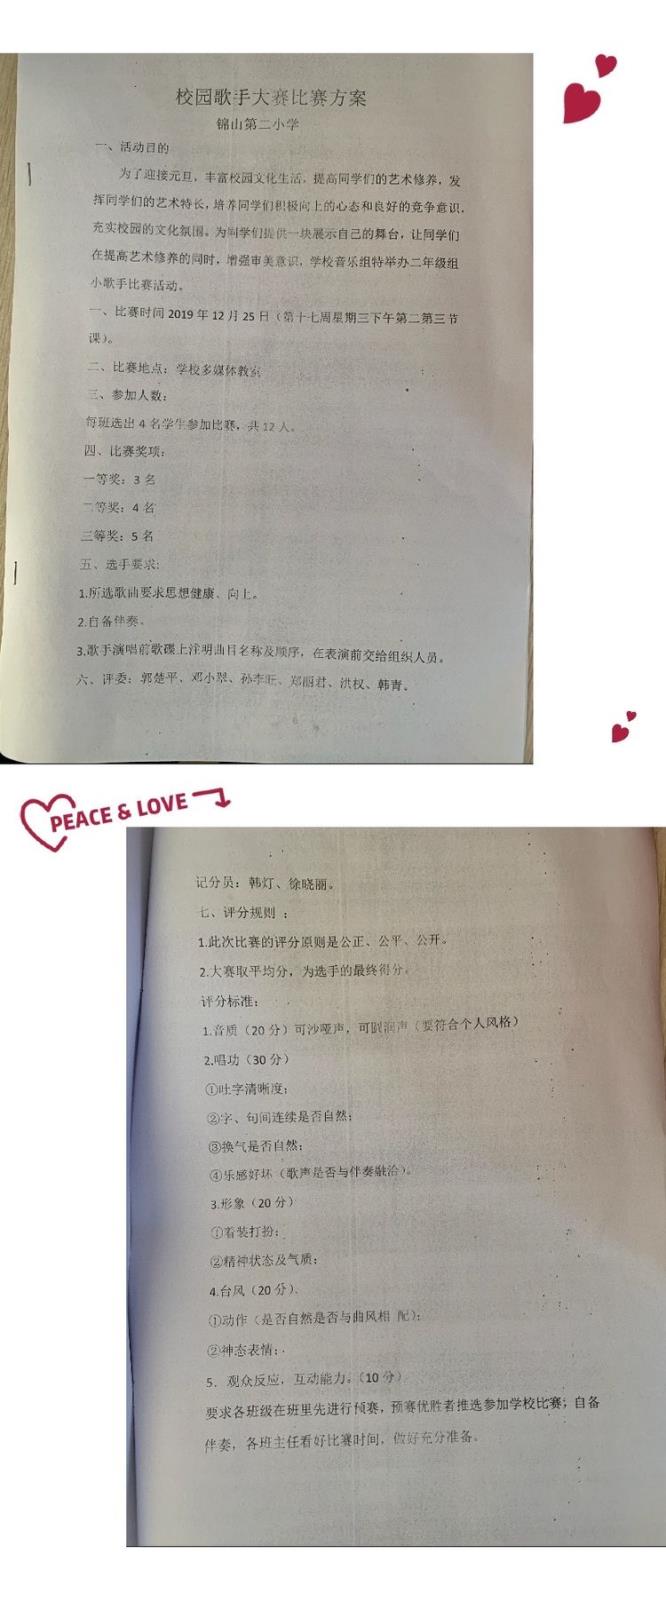 校园歌手大赛比赛方案
锦山第二小学
一、活动目的
为了迎接元旦，丰富校园文化生活，提高同学们的艺术修养，发
挥同学们的艺术特长，培养同学们积极向上的心态和良好的竞争意识，
充实校园的文化氛围。为同学们提供一块展示自己的舞台，让同学们
在提高艺术修养的同时，增强审美意识，学校音乐组特举办二年级组
小歌手比赛活动。
一、比赛时间 2019 年 12 月 25 日（第十七周星期三下午第二第三节
课）。
二、比赛地点：学校多媒体教室
三、参加人数：
每班选出 4 名学生参加比赛，共 12 人。
四、比赛奖项：
一等奖：3 名
二等奖：4 名
三等奖：5 名
五、选手要求：
1.所选歌曲要求思想健康、向上。
2.自备伴奏。
3.歌手演唱前歌碟上注明曲目名称及顺序，在表演前交给组织人员。
六、评委：郭楚平、邓小翠、孙李旺、郑丽君、洪权、韩青。
PEACE & LOVE
记分员：韩灯、徐晓丽。
七、评分规则 ：
1.此次比赛的评分原则是公正、公平、公开。
2.大赛取平均分，为选手的最终得分。
评分标准：
1.音质（20 分）可沙哑声，可圆润声（要符合个人风格）
2.唱功（30 分）
①吐字清晰度；
②字、句间连续是否自然；
③换气是否自然；
④乐感好坏（歌声是否与伴奏融洽）。
3.形象（20 分）
①着装打扮；
②精神状态及气质；
4.台风（20 分）、
①动作（是否自然是否与曲风相 配）；
②神态表情；
5．观众反应，互动能力。（10 分）
要求各班级在班里先进行预赛，预赛优胜者推选参加学校比赛；自备
伴奏，各班主任看好比赛时间，做好充分准备。